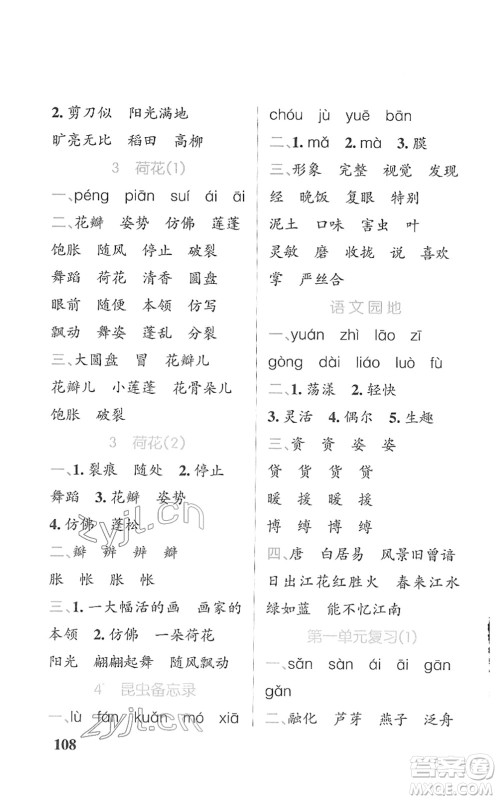 2.剪刀似 阳光满地
旷亮无比 稻田 高柳
3 荷花(1)
一、péng piān suí ái āi
二、花瓣 姿势 仿佛 莲蓬
饱胀 随风 停止 破裂
舞蹈 荷花 清香 圆盘
眼前 随便 本领 仿写
飘动 舞姿 蓬乱 裂裂
三、大圆盘 冒 花瓣儿
花瓣儿 小莲蓬 花骨朵儿
饱胀 破裂
3 荷花(2)
一、1.裂痕 随处 2.停止
舞蹈 3.花瓣 姿势
4.仿佛 蓬松
二、瓣 辨 辨 瓣
胀 帐 胀 帐
三、1.一大幅活的画 画家的
本领 2.仿佛 一朵荷花
阳光 翩翩起舞 随风飘动
4 昆虫备忘录
一、lù fán kuǎn mó xiā
108
chóu jù yuē bān
二、1.mǎ 2.mà 3.膜
三、形象 完整 视觉 发现
经 晚饭 复眼 特别
泥土 口味 害虫 叶
灵敏 磨 收拢 说 喜欢
掌 严丝合
语文园地
一、yuán zhì lāo zī
gòng dài liáo luò fù
二、1.荡漾 2.轻快
3.灵活 4.偶尔 5.生趣
三、资 资 姿 姿
货 贷 货 贷
暖 援 暖 援
博 缚 博 缚
四、唐 白居易 风景旧曾谙
日出江花红胜火 春来江水
绿如蓝 能不忆江南
第一单元复习(1)
一、sǎn sàn ái āi gān
gǎn
二、融化 芦芽 燕子 泛舟
zyjl.cn
zyjl.cn
答案圈
MXQE.COM